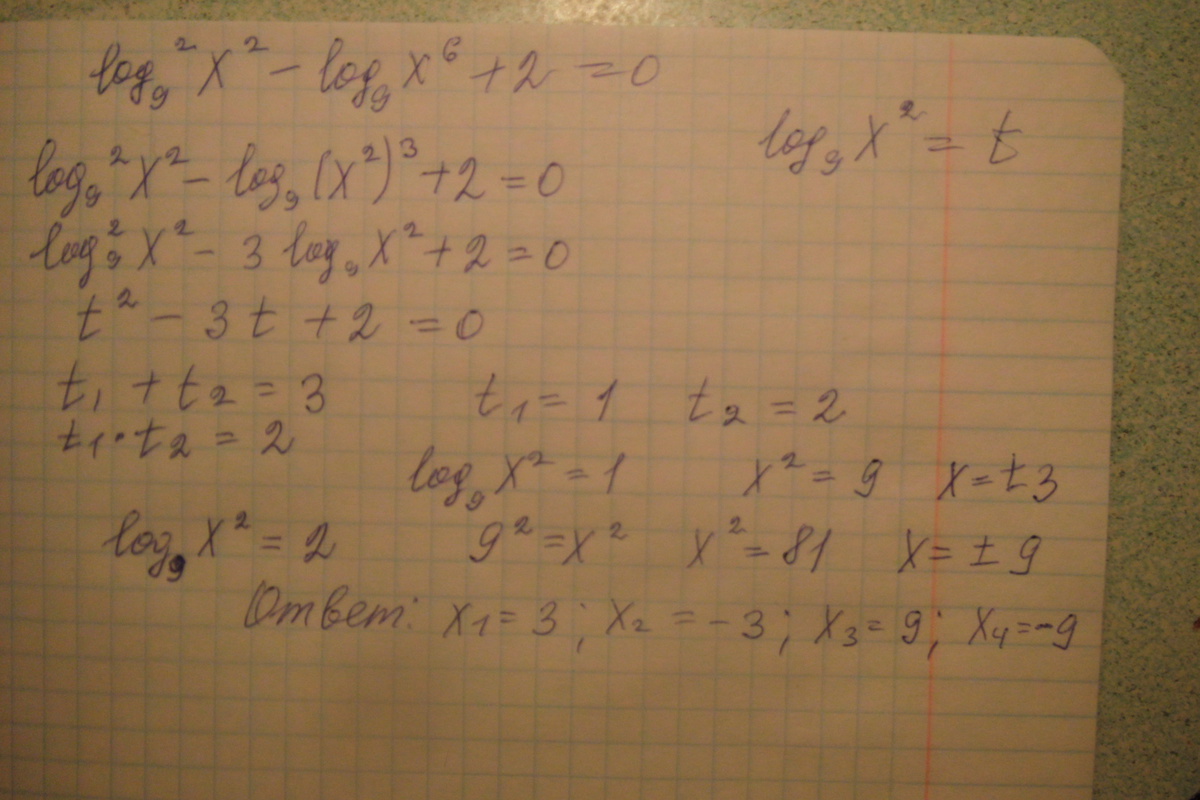 log₉² x² − log₉ x⁶ + 2 = 0
log₉ x² = t
log₉² x² − log₉ (x²)³ + 2 = 0
log₉² x² − 3 log₉ x² + 2 = 0
t² − 3t + 2 = 0
t₁ + t₂ = 3 t₁ = 1 t₂ = 2
t₁ · t₂ = 2
log₉ x² = 1 x² = 9 x = ±3
log₉ x² = 2 9² = x² x² = 81 x = ±9
Ответ: x₁ = 3; x₂ = −3; x₃ = 9; x₄ = −9